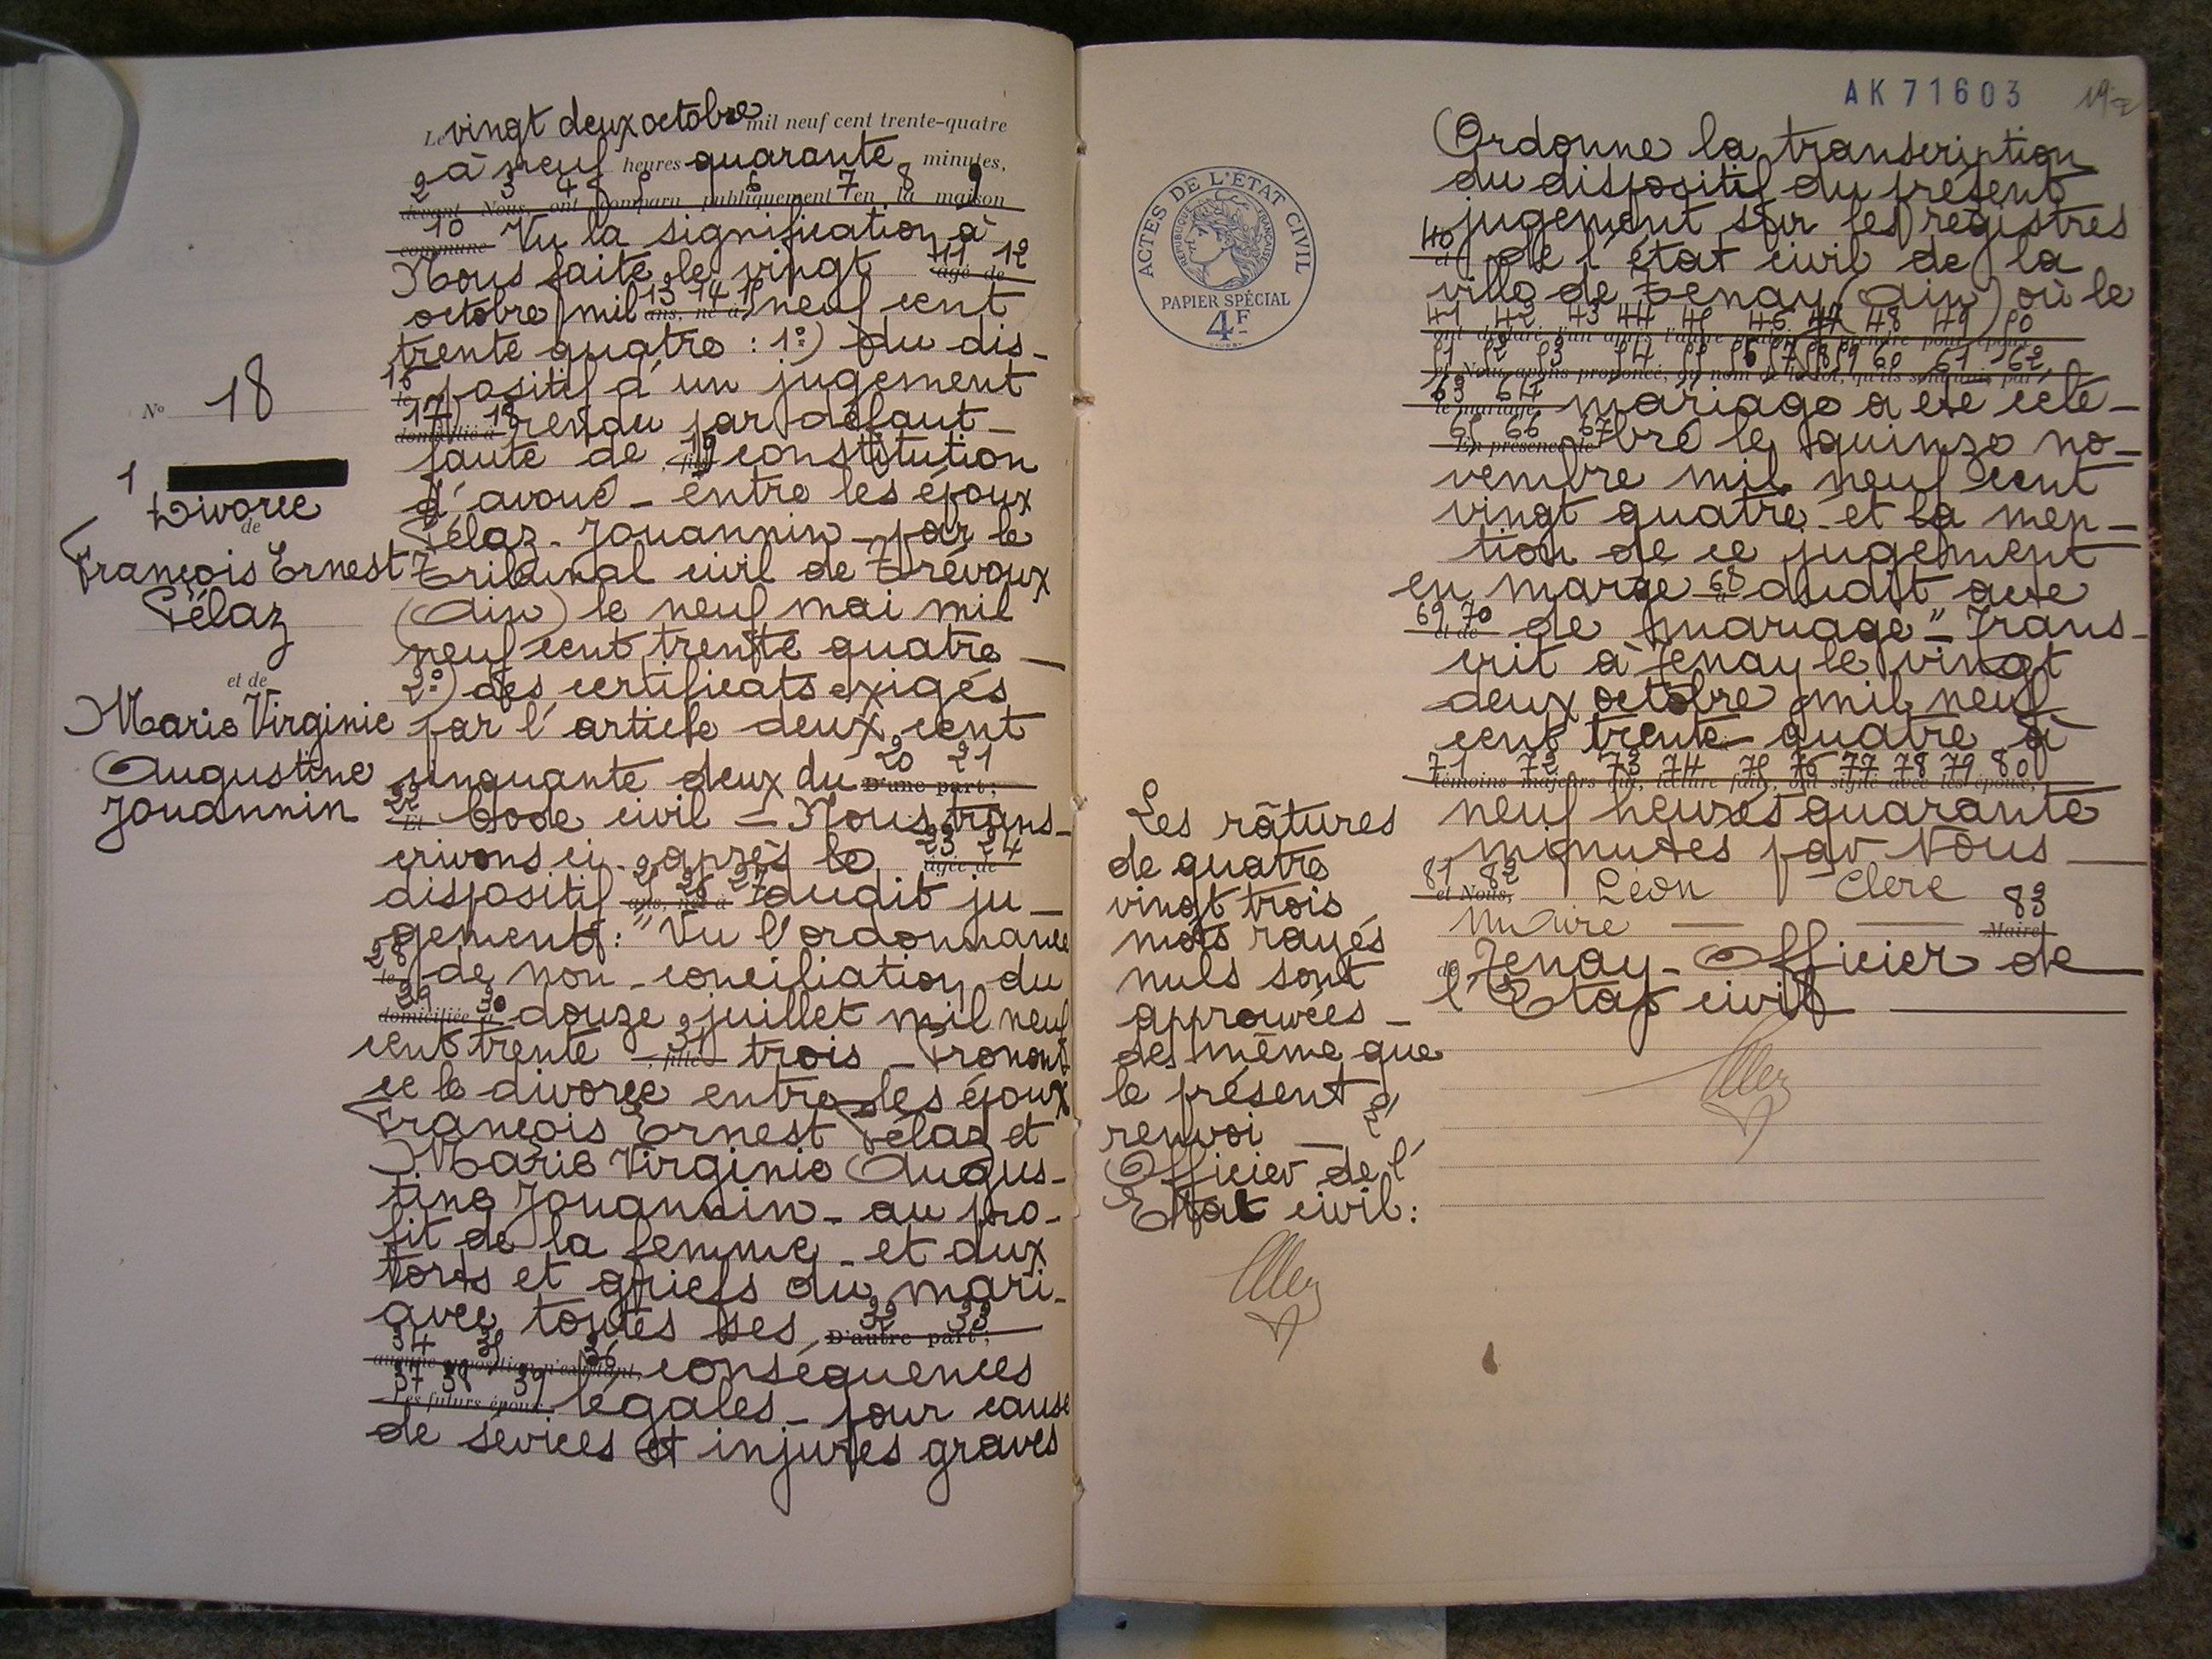 Le vingt deux octobre mil neuf cent trente-quatre
à neuf heures quarante minutes,
2 3 4 5 6 7 8 9
devant Nous, ont comparu publiquement en la maison
10
commune Vu la signification à
Nous faite le vingt 11 12 âgé de
octobre mil 13 14 15 ans, né à neuf cent
trente quatre : 1°) du dis-
16 le positif d'un jugement
17 18 domicilié à rendu par défaut -
faute de 19 fils constitution
d'avoué - entre les époux
Pélaz - Jouannin - par le
Tribunal civil de Trévoux
(Ain) le neuf mai mil
neuf cent trente quatre -
2°) des certificats exigés
par l'article deux cent
cinquante deux du 20 21 D'une part ;
22 Et Code civil - Nous trans-
crivons ci-après le 23 24 âgée de
dispositif 25 26 27 ans, née à dudit ju-
gement : "Vu l'ordonnance
28 le de non-conciliation du
29 30 domiciliée à douze juillet mil neuf
cent trente 31 , fille trois - Pronon
ce le divorce entre les époux
François Ernest Pélaz et
Marie Virginie Augus-
tine Jouannin - au pro-
fit de la femme - et aux
torts et griefs du mari -
avec toutes ses 32 33 D'autre part ;
34 35 36
aucune opposition n'existant, conséquences
37 38 39
Les futurs époux légales - pour cause
de sévices et injures graves
N° 18
1
Divorce
de
François Ernest
Pélaz
et de
Marie Virginie
Augustine
Jouannin
AK 71603
ACTES DE L'ÉTAT CIVIL
RÉPUBLIQUE FRANÇAISE
PAPIER SPÉCIAL
4F
Ordonne la transcription
du dispositif du présent
jugement sur les registres
40 et de l'état civil de la
ville de Tenay (Ain) où le
41 42 43 44 45 46 47 48 49 50
ont déclaré l'un après l'autre vouloir se prendre pour époux
51 52 53 54 55 56 57 58 59 60 61 62
et Nous avons prononcé, au nom de la loi, qu'ils sont unis par
63 64
le mariage. mariage a été célé-
65 66 67
En présence de bré le quinze no-
vembre mil neuf cent
vingt quatre - et la men-
tion de ce jugement
en marge 68 à dudit acte
69 70 et de de mariage" - Trans-
crit à Tenay le vingt
deux octobre mil neuf
cent trente quatre à
71 72 73 74 75 76 77 78 79 80
témoins majeurs qui, lecture faite, ont signé avec les époux,
neuf heures quarante
minutes par Nous -
81 82 et Nous, Léon Clerc
Maire 83 Maire
de Tenay - Officier de
l'Etat civil
Les râtures
de quatre
vingt trois
mots rayés
nuls sont
approuvées -
de même que
le présent
renvoi - L'
Officier de l'
Etat civil :